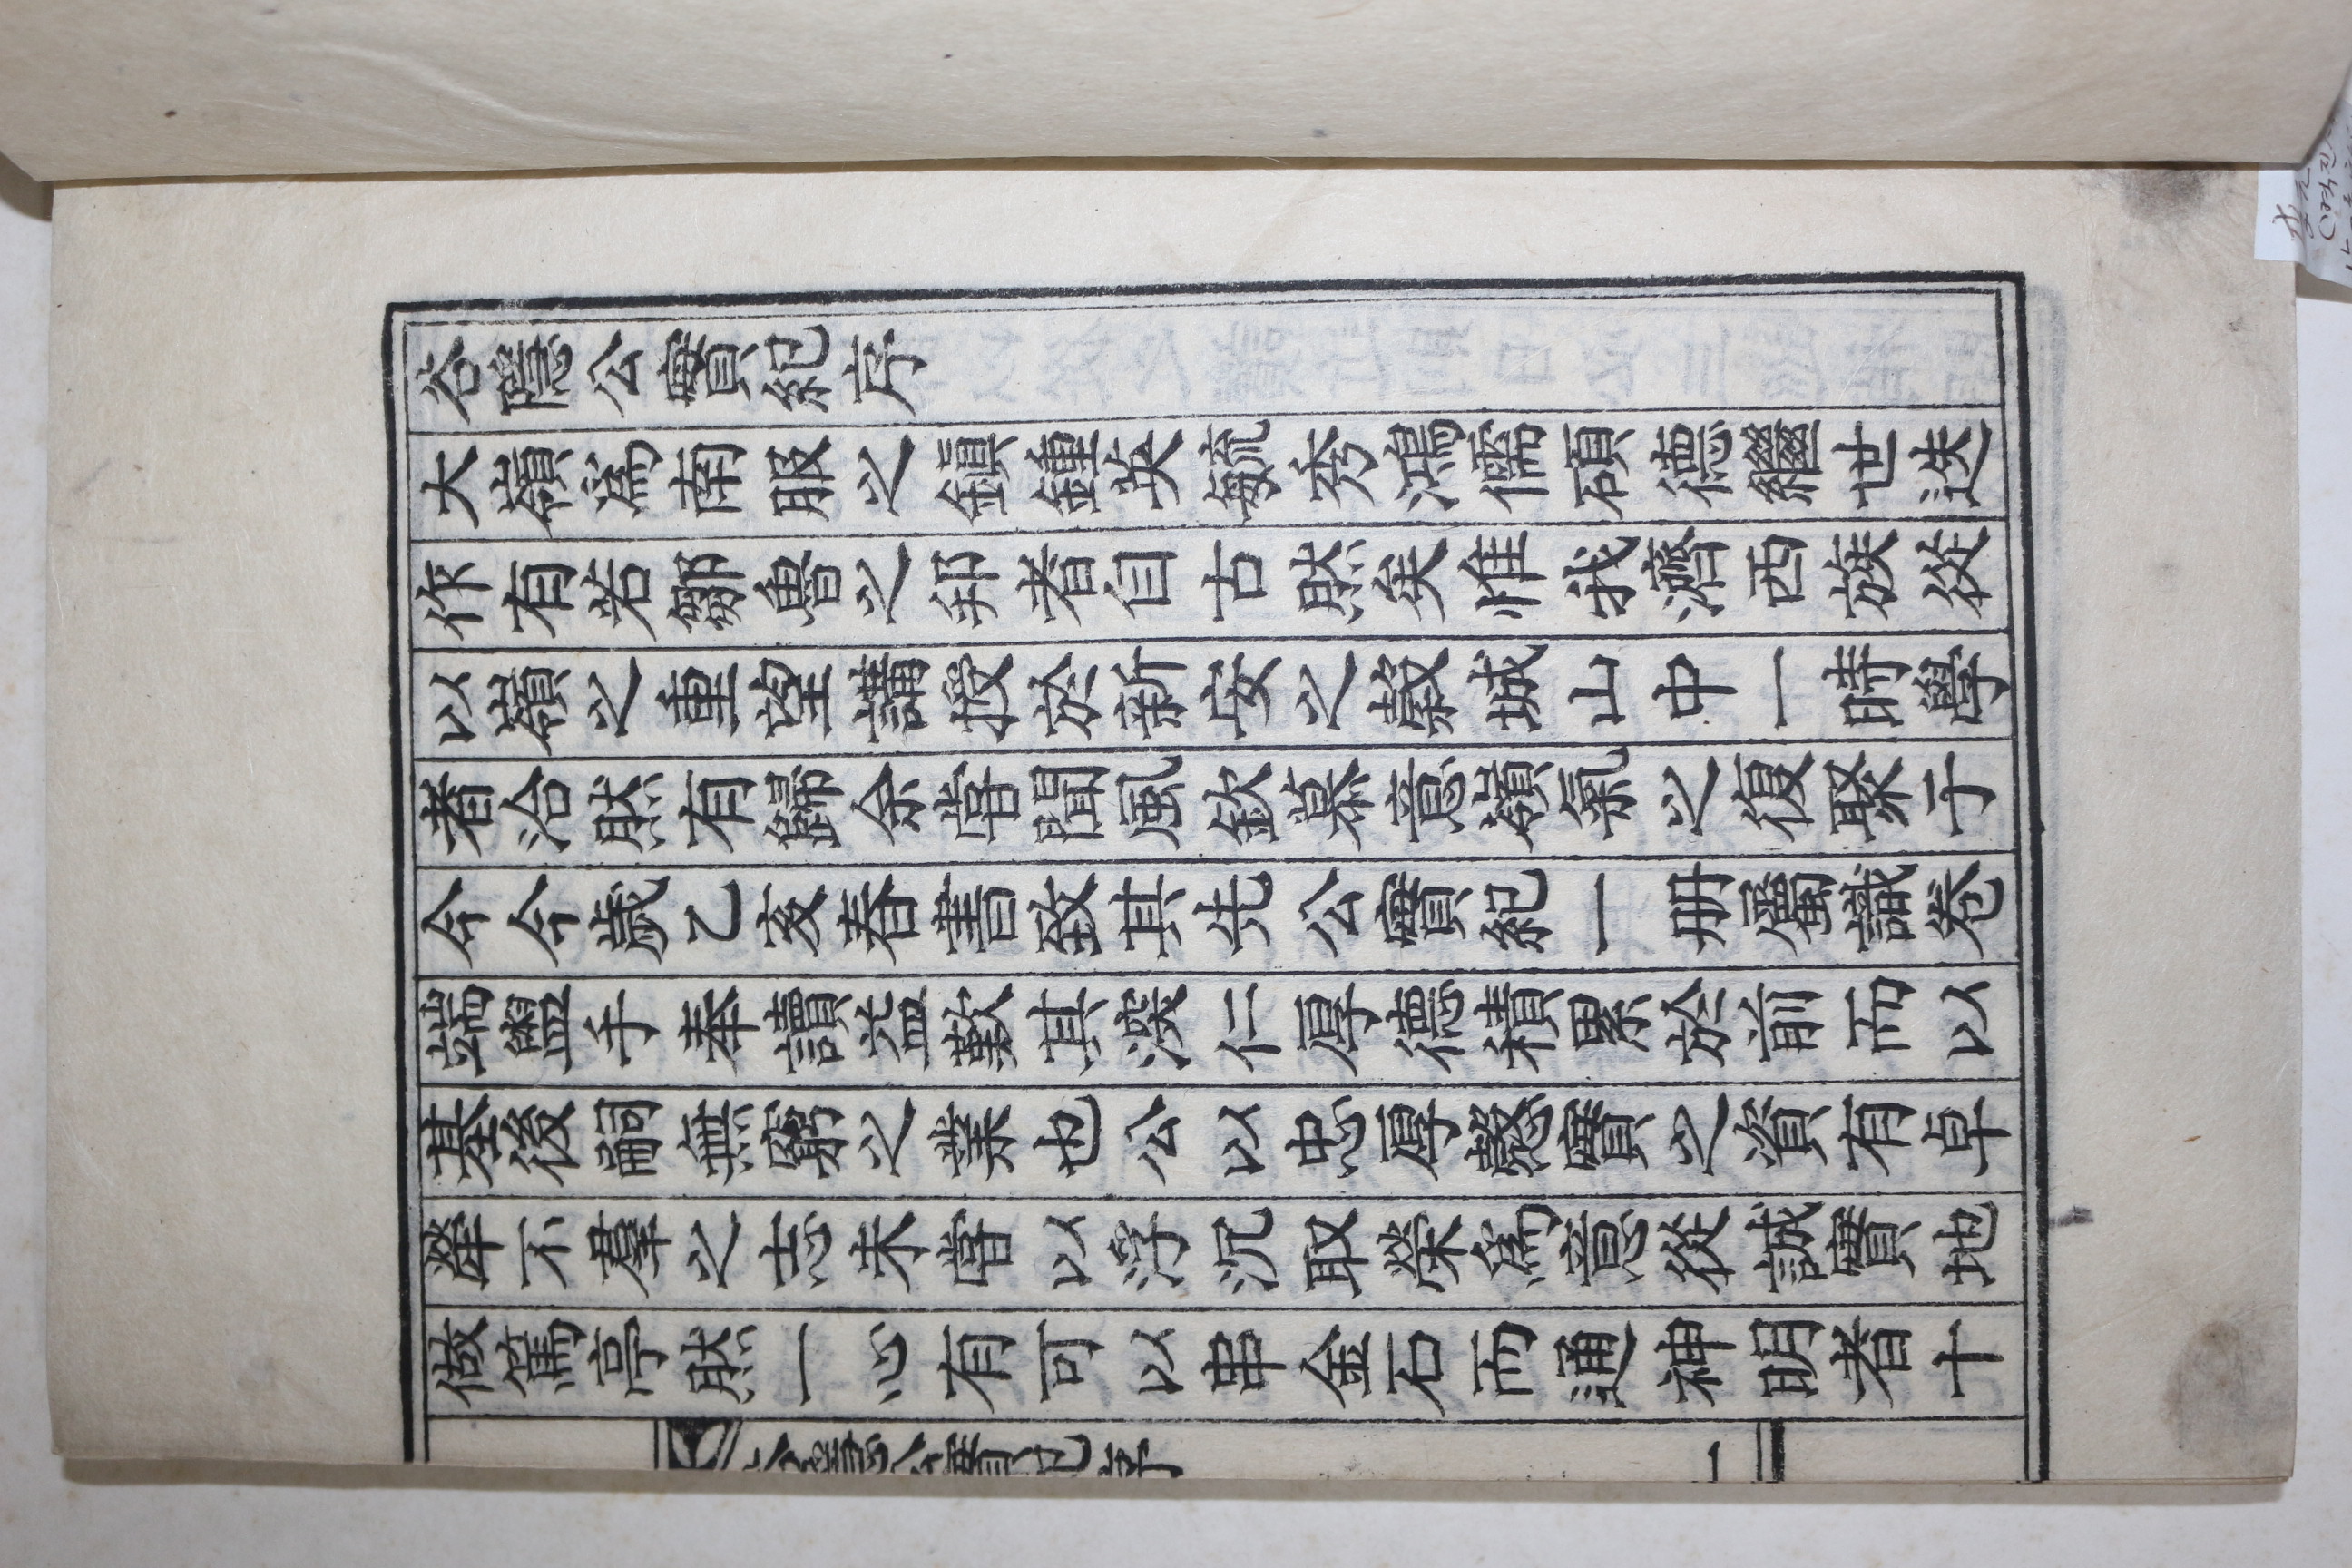 谷隱公實紀序
大嶺爲南服之鎭鍾英毓秀鴻儒碩德繼世迭
作有若鄒魯之邦者自古然矣惟我濟西族從
以嶺之重望講授於新安之穀城山中一時學
者洽然有歸余嘗聞風欽慕意嶺氣之復聚于
今今歲乙亥春書致其先公實紀一册屬識卷
端盥手奉讀益歎其深仁厚德積累於前而以
基後嗣無窮之業也公以忠厚慤實之資有卓
犖不羣之志未嘗以浮沉取榮爲意從誠實地
做篤亭然一心有可以串金石而通神明者十